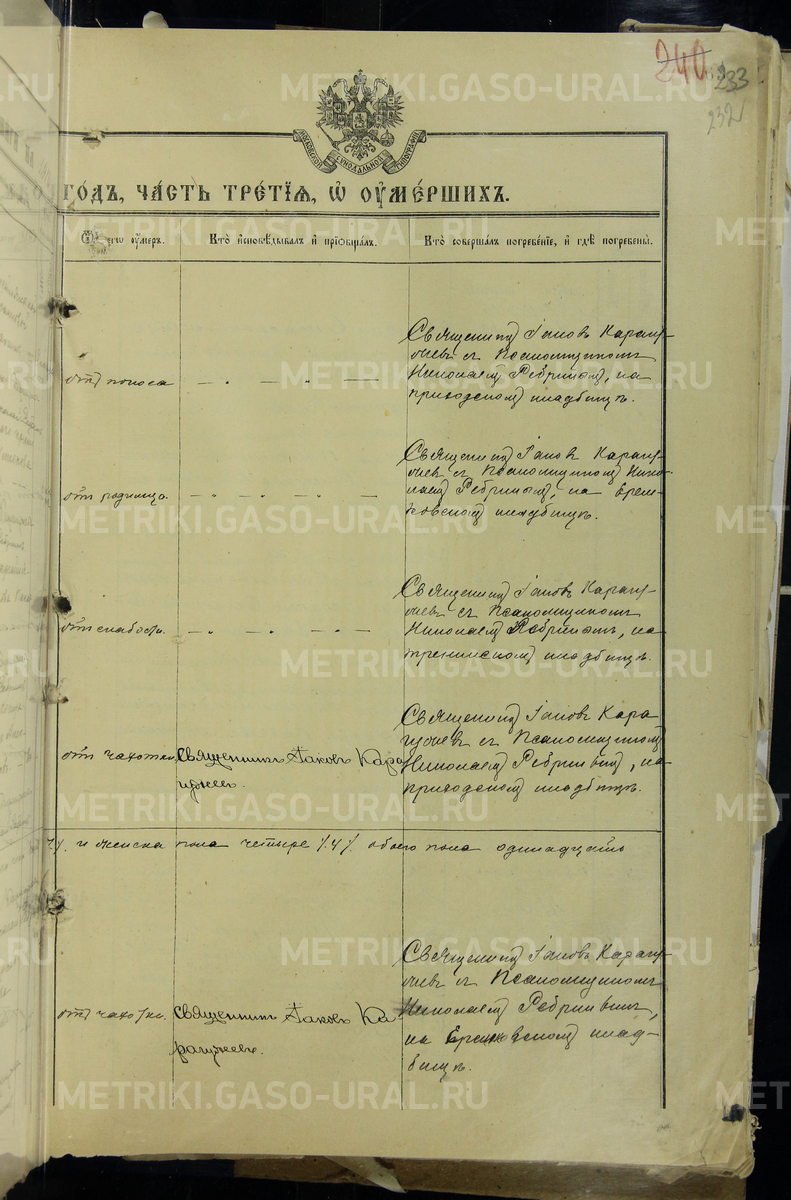 240
233
232
МОСКОВСКОЙ СѴНОДАЛЬНОЙ ТИПОГРАФІИ
ГОДЪ, ЧАСТЬ ТРЕТІЯ, Ѡ ОУМЕРШИХЪ.
чегѡ оумеръ.
Кто исповѣдывалъ и пріобщалъ.
Кто совершалъ погребеніе, и гдѣ погребены.
отъ поноса
— " — " —
Священникъ Іаковъ Карагу-
жевъ съ Псаломщикомъ
Николаемъ Ребринымъ, на
приходскомъ кладбищѣ.
отъ родимца
— " — " — " —
Священникъ Іаковъ Карагу-
жевъ съ Псаломщикомъ Нико-
лаемъ Ребринымъ, на
кладбищѣ.
отъ слабости.
— " — " — " —
Священникъ Іаковъ Карагу-
жевъ съ Псаломщикомъ
Николаемъ Ребринымъ, на
кладбищѣ.
отъ чахотки
Священникъ Іаковъ Кара
гужевъ.
Священникъ Іаковъ Кара
гужевъ съ Псаломщикомъ
Николаемъ Ребринымъ, на
приходскомъ кладбищѣ.
и женска пола четыре /.4/. обоего пола одинадцать
отъ чахотки.
Священникъ Іаковъ Ка-
рагужевъ.
Священникъ Іаковъ Карагу-
жевъ съ Псаломщикомъ
Николаемъ Ребринымъ,
на клад-
бищѣ.
METRIKI.GASO-URAL.RU